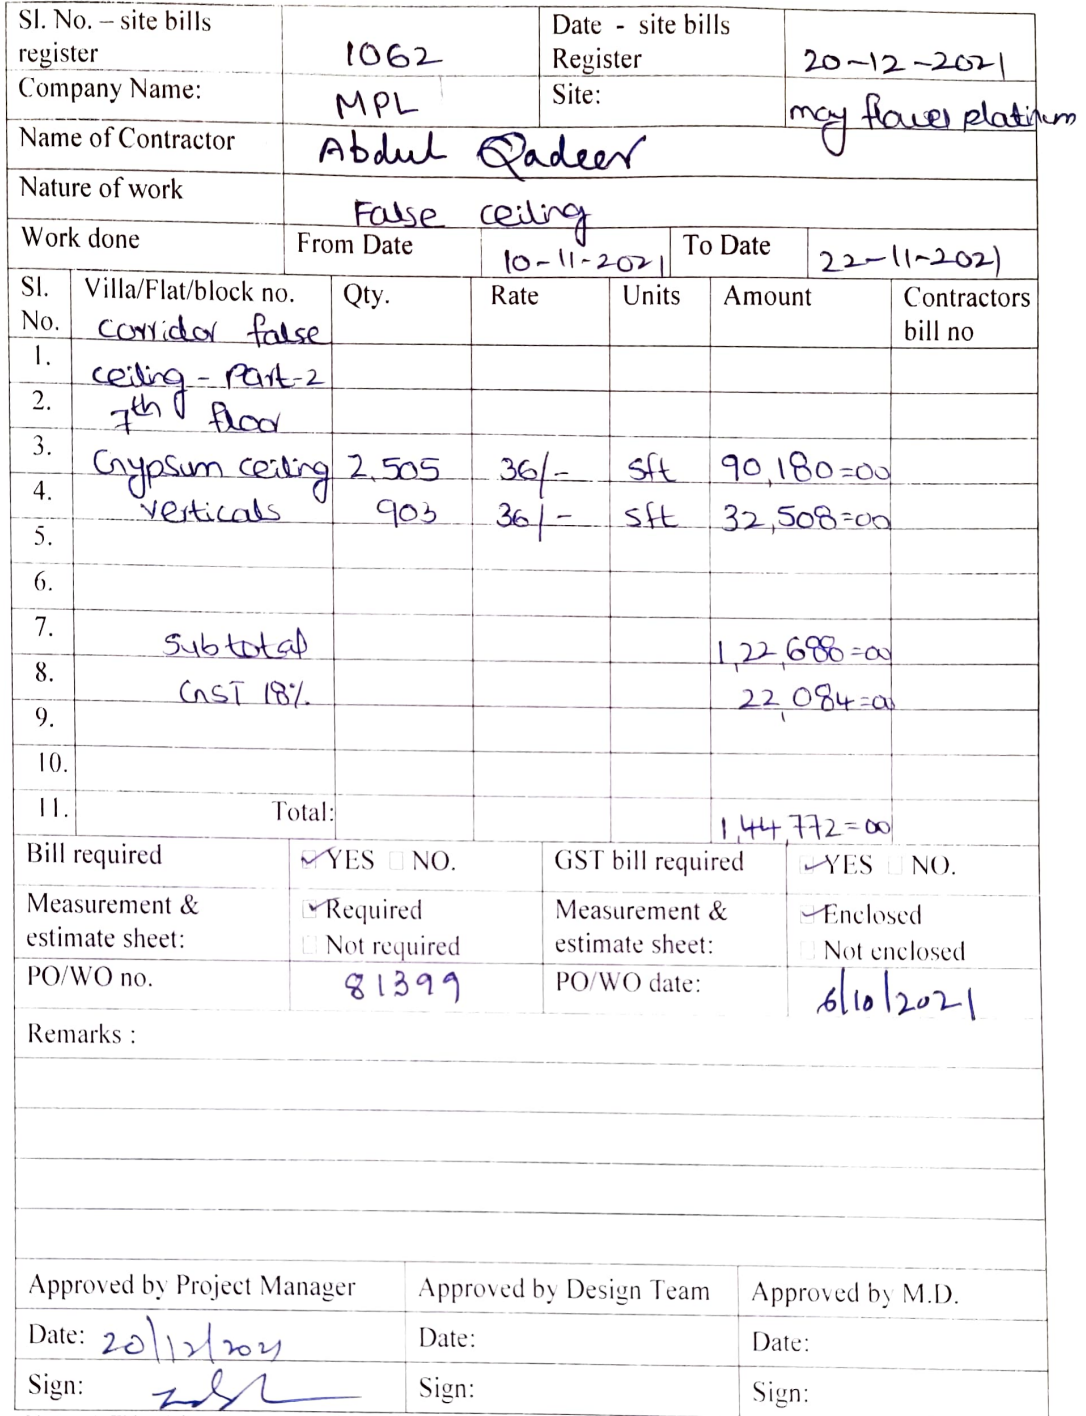 Sl. No. – site bills register 1062 Date - site bills Register 20-12-2021
Company Name: MPL Site: may flower platinum
Name of Contractor Abdul Qadeer
Nature of work False ceiling
Work done From Date 10-11-2021 To Date 22-11-2021
Sl. No. Villa/Flat/block no. Qty. Rate Units Amount Contractors bill no
corridor false
1. ceiling - Part-2
2. 7th floor
3. Gypsum ceiling 2,505 36/- sft 90,180=00
4. verticals 903 36/- sft 32,508=00
5.
6.
7. Subtotal 1,22,688=00
8. GST 18% 22,084=00
9.
10.
11. Total: 1,44,772=00
Bill required YES NO. GST bill required YES NO.
Measurement & estimate sheet: Required Not required Measurement & estimate sheet: Enclosed Not enclosed
PO/WO no. 81399 PO/WO date: 6/10/2021
Remarks :
Approved by Project Manager Approved by Design Team Approved by M.D.
Date: 20/12/2021 Date: Date:
Sign: Sign: Sign: